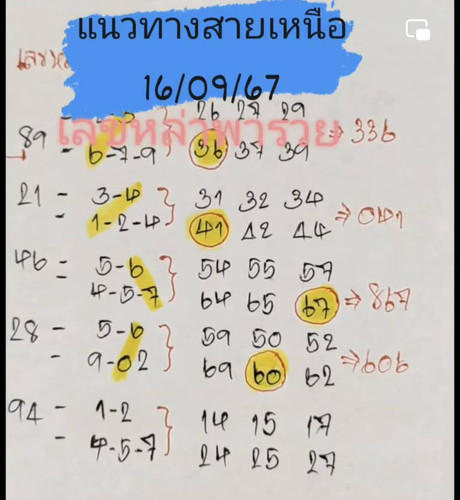 แนวทางสายเหนือ
16/09/67
เลขหล่าพารวย
26 27 29
89 = 6-7-9 36 37 39 ⇒ 336
21 = 3-4 31 32 34
- 1-2-4 41 42 44 ⇒ 041
46 = 5-6 54 55 57
4-5-7 64 65 67 ⇒ 867
28 - 5-6 59 50 52
- 9-02 69 60 62 ⇒ 606
94 - 1-2 14 15 17
- 4-5-7 24 25 27